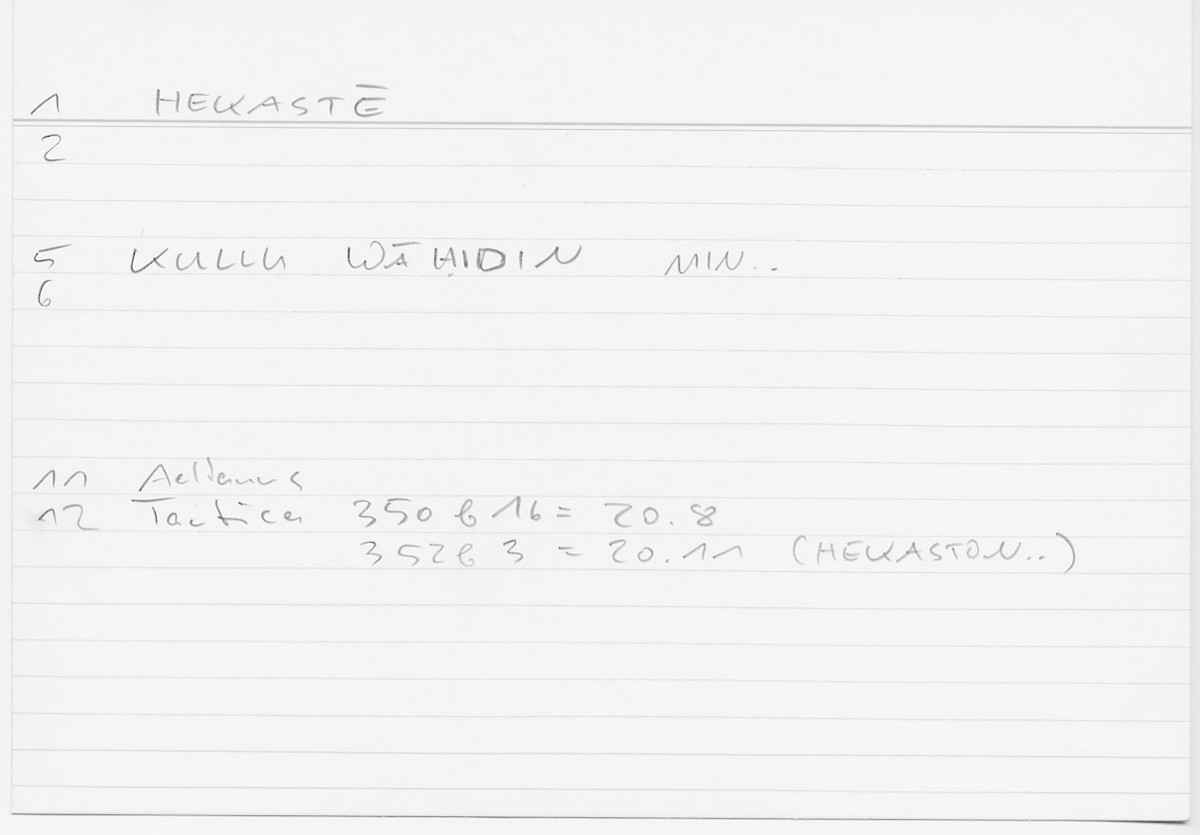 1 HEKASTĒ
2
5 KULLU WĀḤIDIN MIN..
6
11 Aelianus
12 Tactica 350 b 16 = 20.8
352 b 3 = 20.11 (HEKASTON..)